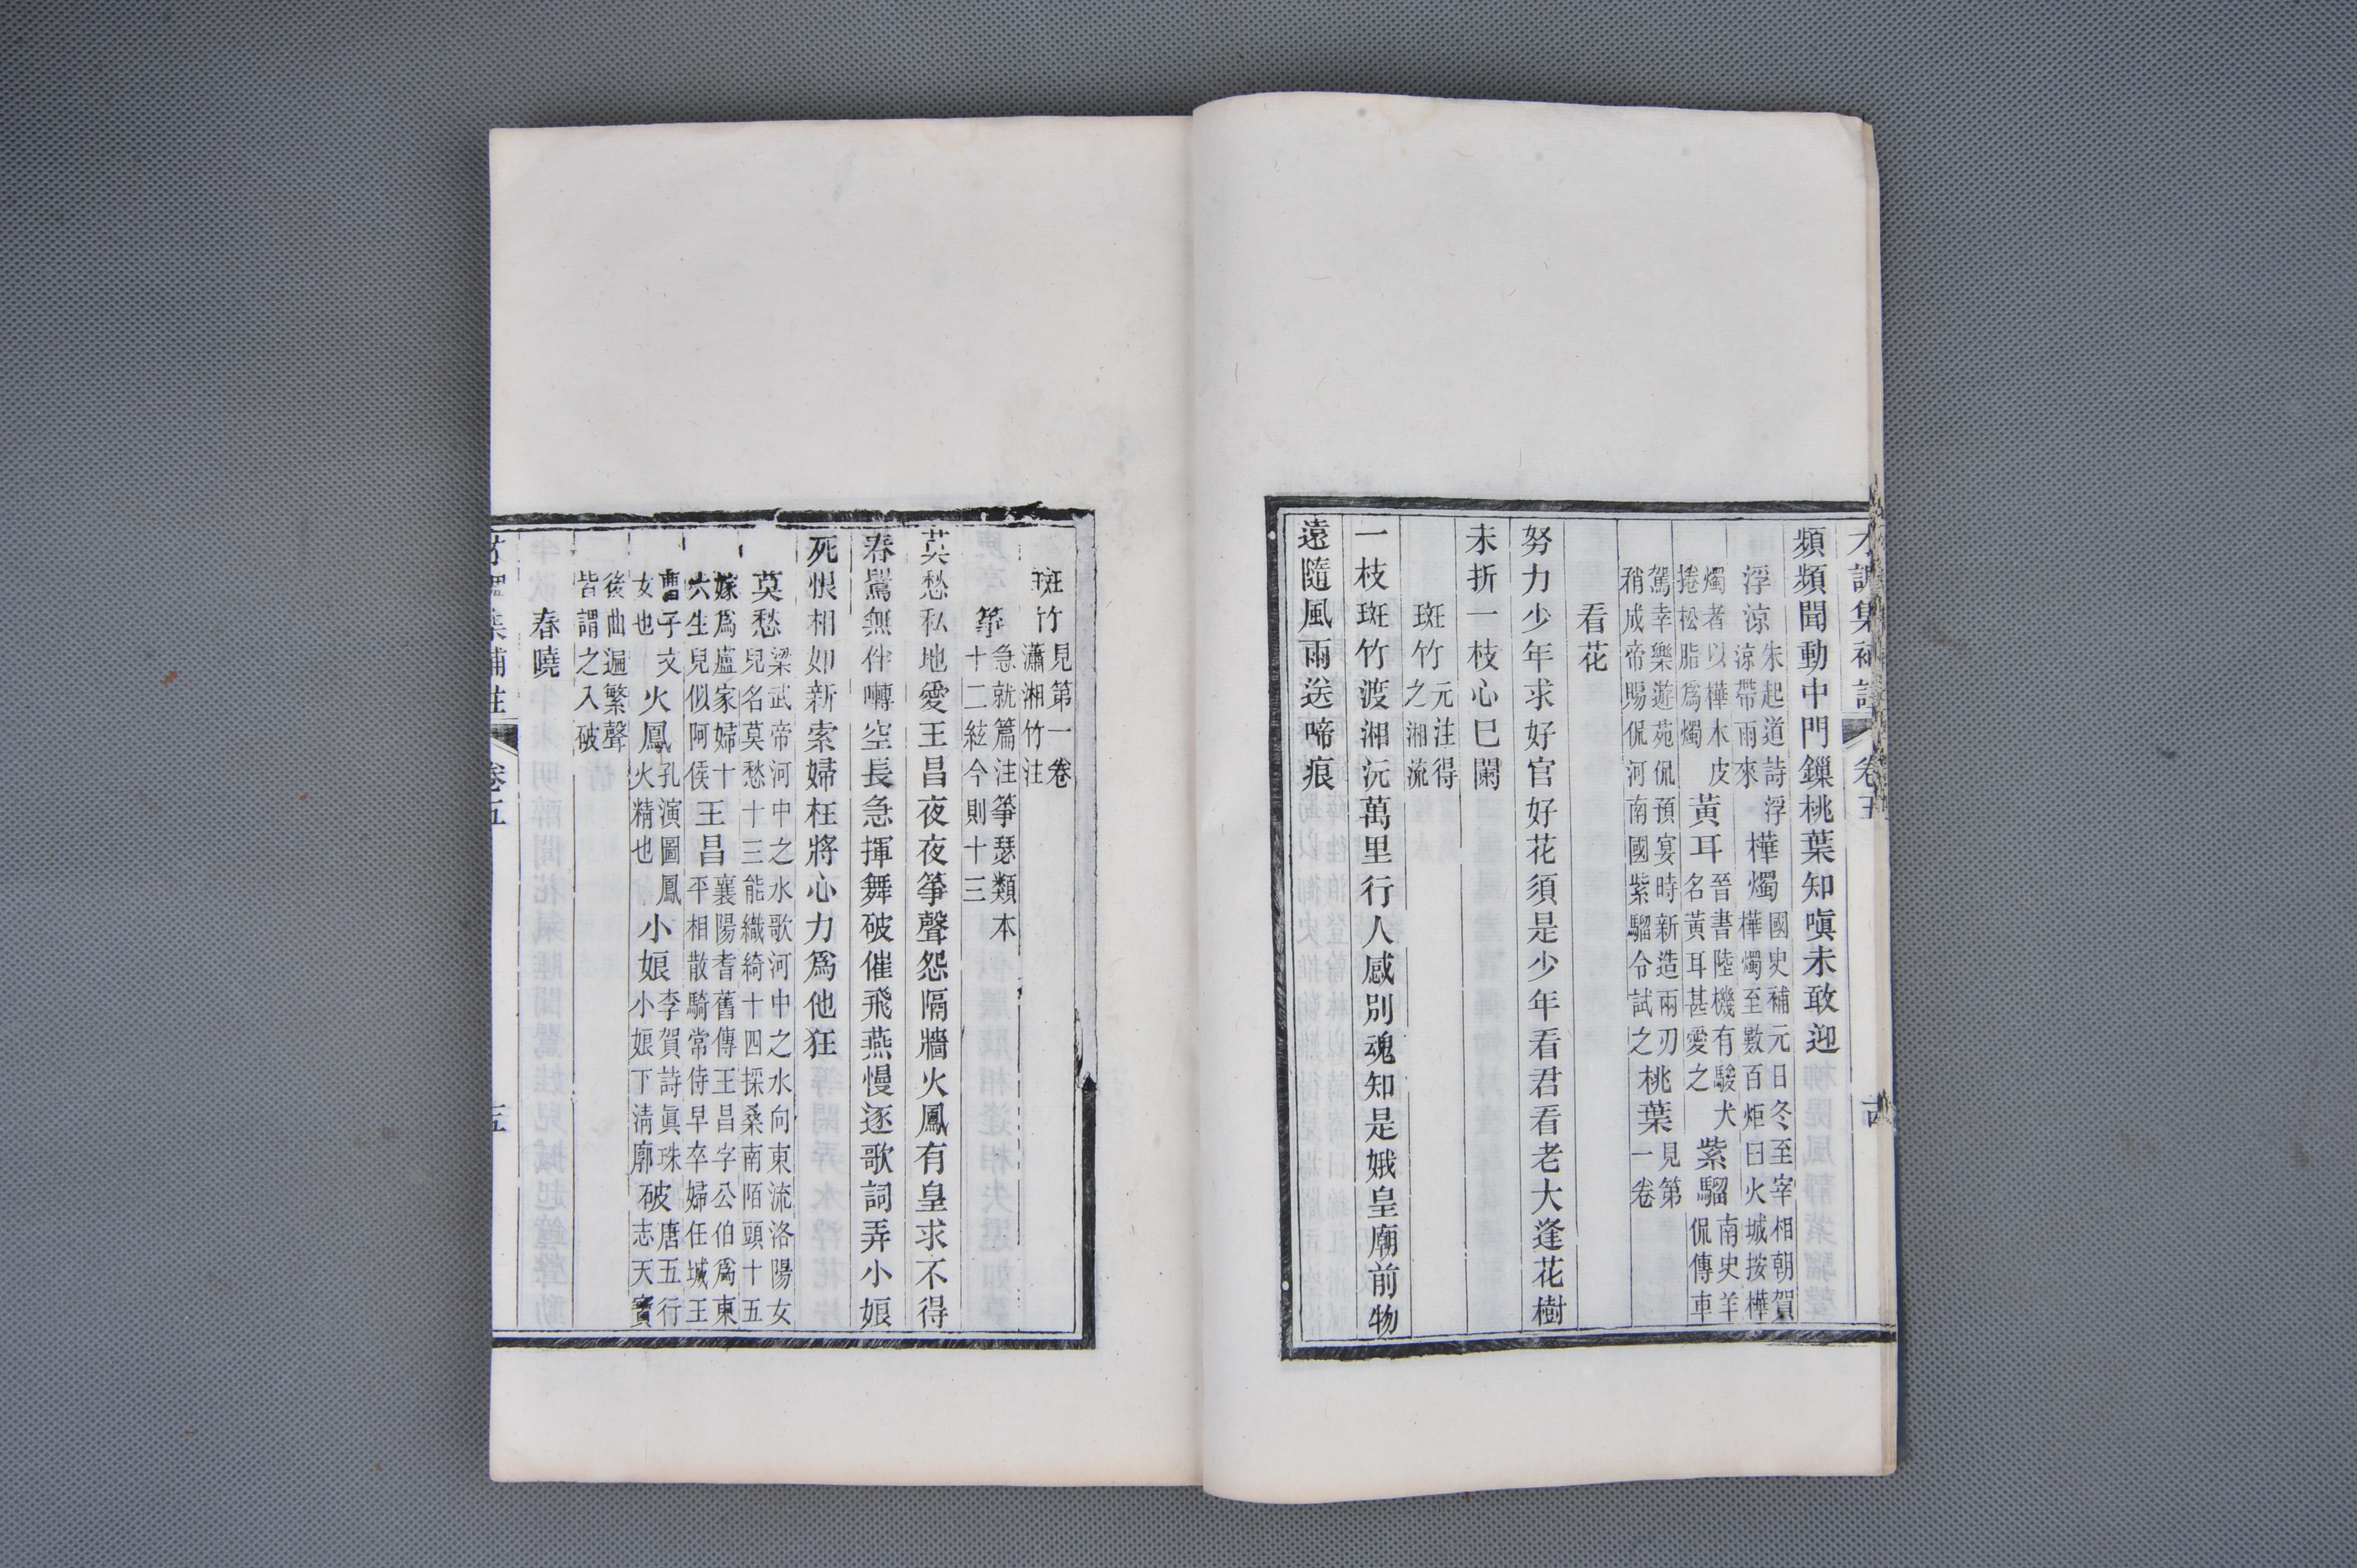 才調集補註 卷五 古
頻頻聞動中門鎖桃葉知嗔未敢迎
浮涼朱起道詩浮涼帶雨來 樺燭國史補元日冬至宰相朝賀樺燭至數百炬曰火城按樺
燭者以樺木皮捲松脂為燭 黃耳晉書陸機有駿犬名黃耳甚愛之 紫騮南史羊侃傳車
駕幸樂遊苑侃預宴時新造兩刃矟成帝賜侃河南國紫騮令試之 桃葉見第一卷
看花
努力少年求好官好花須是少年看君看老大逢花樹
未折一枝心巳闌
斑竹元注得之湘流
一枝斑竹渡湘沅萬里行人感別魂知是娥皇廟前物
遠隨風雨送啼痕
斑竹見第一卷瀟湘竹注
箏急就篇注箏瑟類本十二絃今則十三
莫愁私地愛王昌夜夜箏聲怨隔牆火鳳有皇求不得
春鶯無伴囀空長急揮舞破催飛燕慢逐歌詞弄小娘
死恨相如新索婦枉將心力為他狂
莫愁梁武帝河中之水歌河中之水向東流洛陽女兒名莫愁十三能織綺十四採桑南陌頭十五
嫁為盧家婦十六生兒似阿侯 王昌襄陽耆舊傳王昌字公伯為東平相散騎常侍早卒婦任城王
曹子文女也 火鳳孔演圖鳳火精也 小娘李賀詩真珠小娘下清廓 破唐五行志天寶
後曲遍繁聲皆謂之入破
春曉
才調集補註 卷五